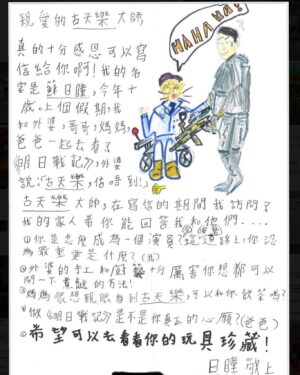 親愛的古天樂大師
HAHAHA!
真的十分感恩可以寫
信給你啊!我的名
字是蘇日曈,今年十
歲。上個假期,我
和外婆,哥哥,媽媽,
爸爸一起去看了
《明日戰記》,外婆
說:「古天樂,估唔到!」
古天樂大師,在寫信的期間我訪問了
我的家人希你能回答我和他們....
①你是怎麼成為一個演員?這道路上,你認
為最重要是什麼?(我)
②外婆的手工和廚藝十分厲害你想都可以
問一下煮餸的方法!
③媽媽很想親眼看到古天樂,可以和你飲茶嗎?
④做《明日戰記》是不是你真正的心願?(爸爸)
⑤希望可以去看看你的玩具珍藏!
日曈敬上